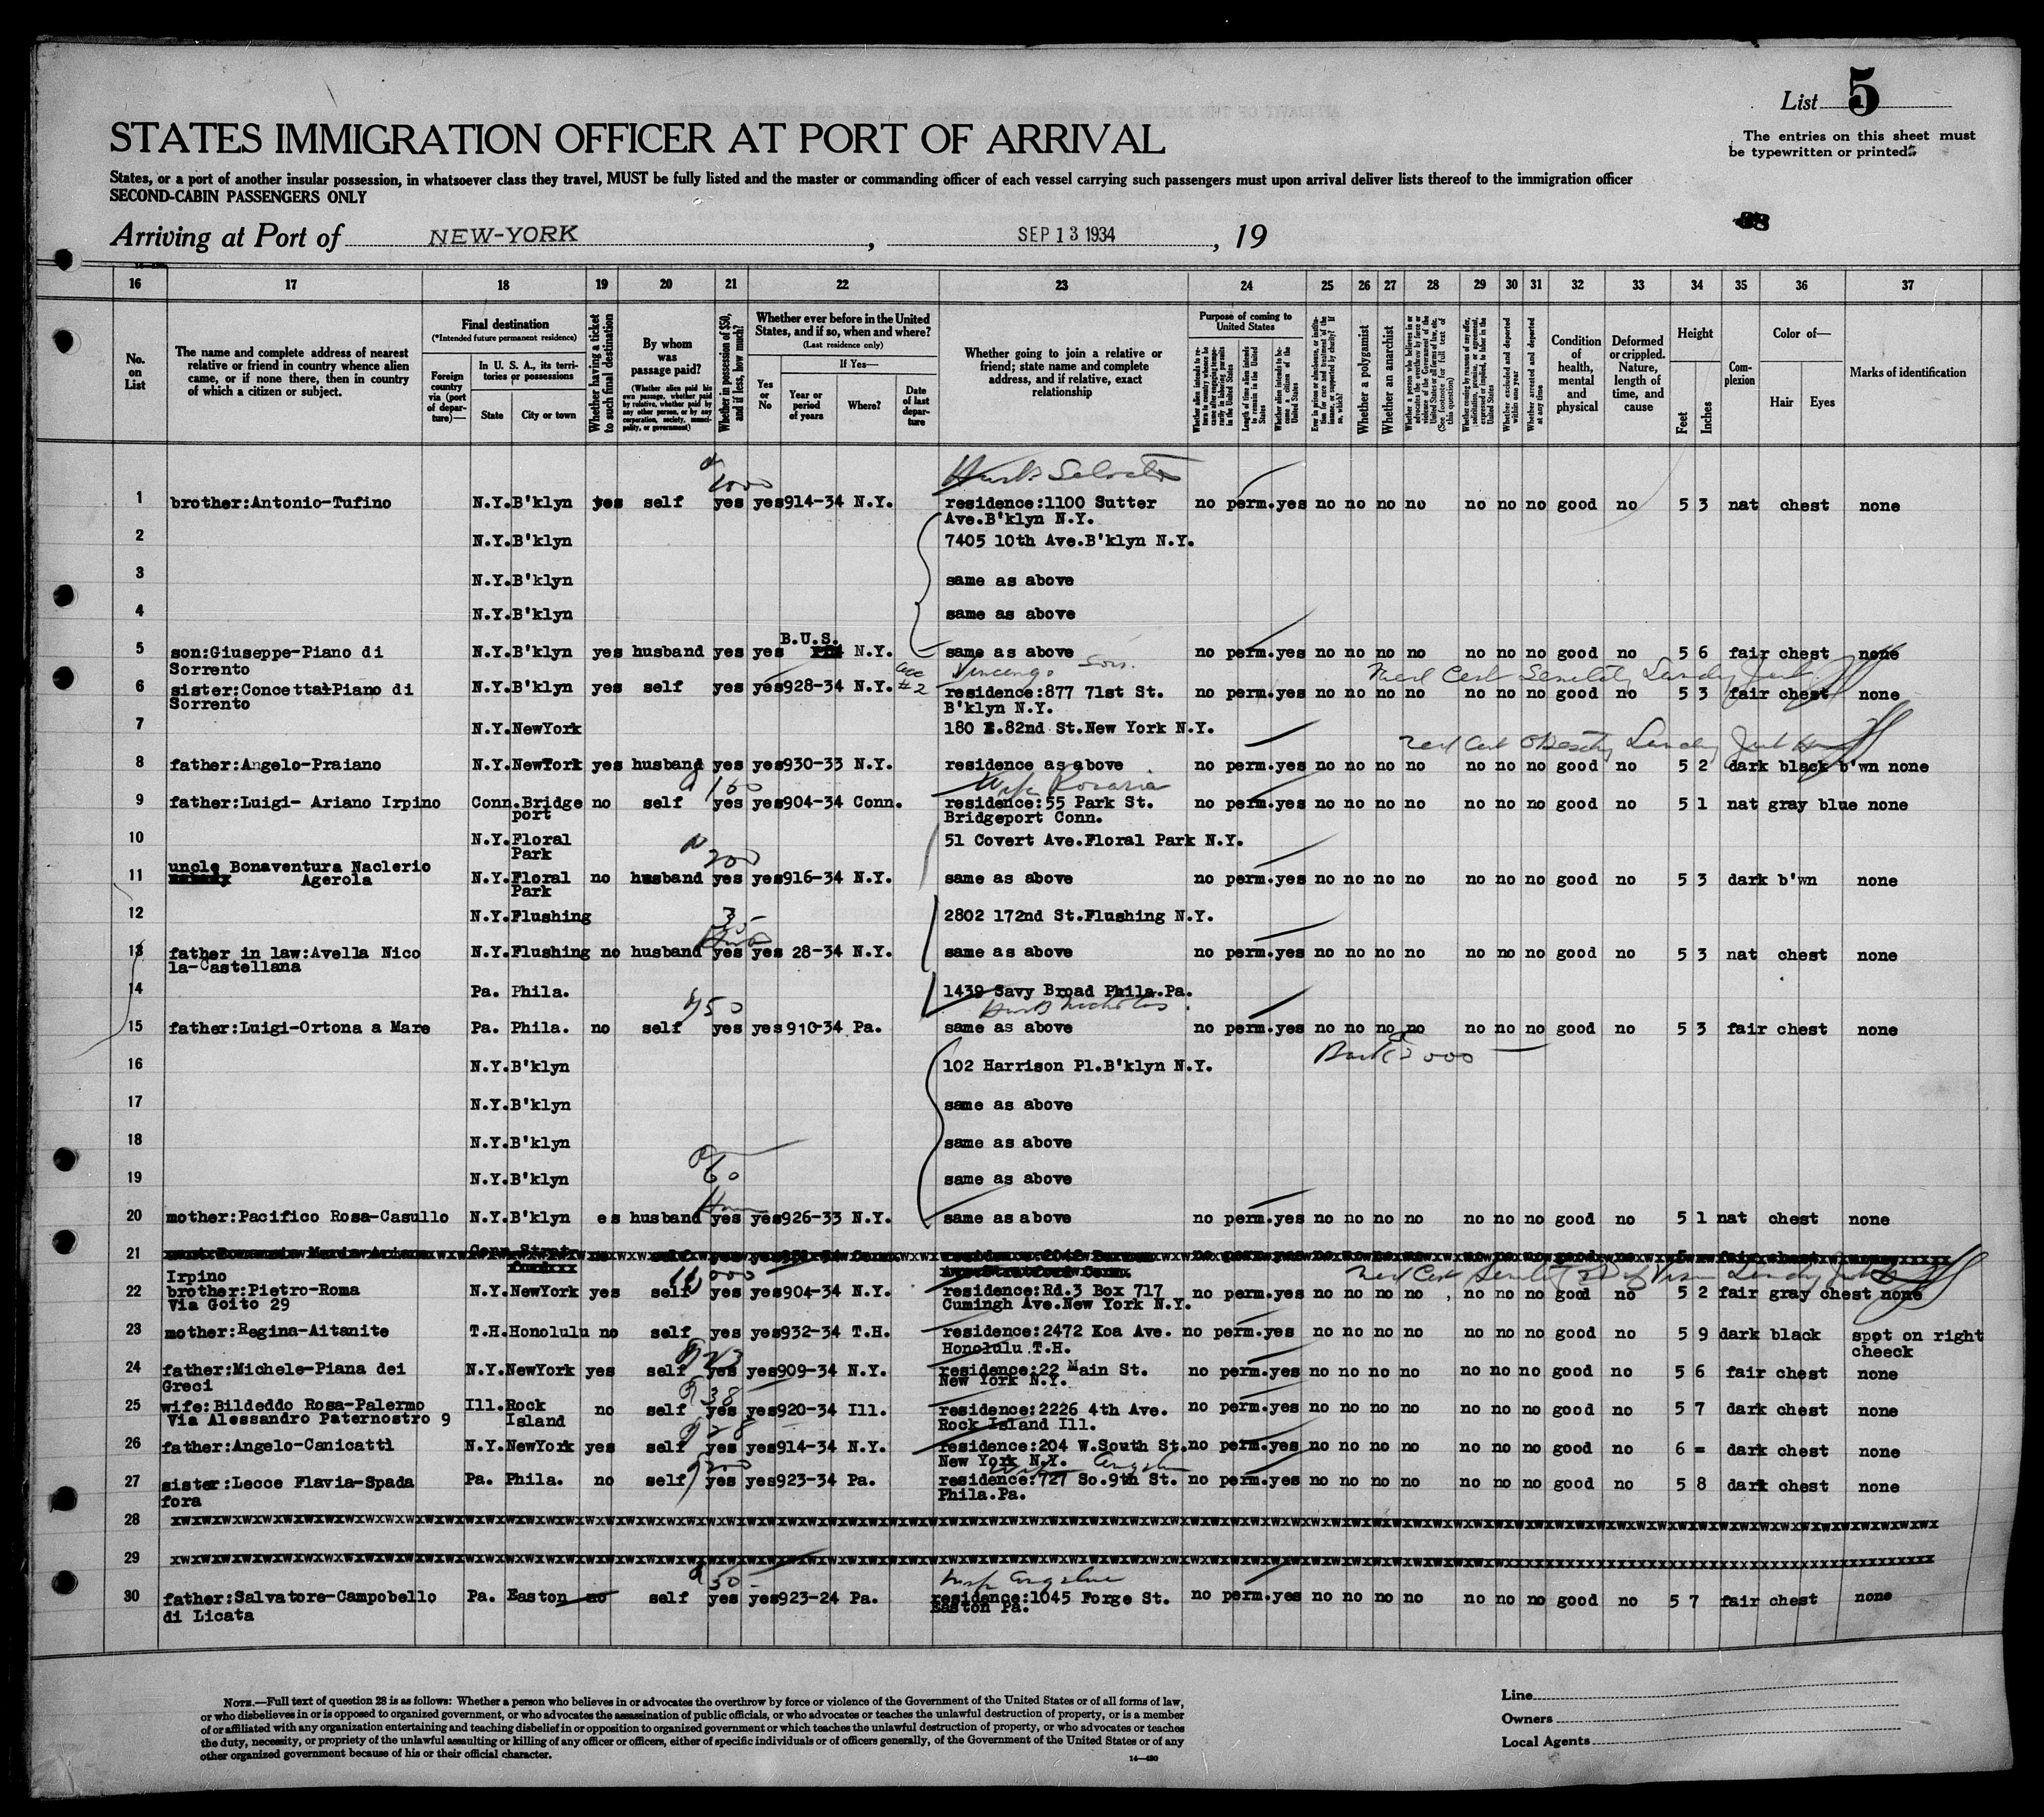 List 5
The entries on this sheet must
be typewritten or printed.
STATES IMMIGRATION OFFICER AT PORT OF ARRIVAL
States, or a port of another insular possession, in whatsoever class they travel, MUST be fully listed and the master or commanding officer of each vessel carrying such passengers must upon arrival deliver lists thereof to the immigration officer
SECOND-CABIN PASSENGERS ONLY
Arriving at Port of NEW-YORK, SEP 13 1934, 19
16 17 18 19 20 21 22 23 24 25 26 27 28 29 30 31 32 33 34 35 36 37
No. on List
The name and complete address of nearest relative or friend in country whence alien came, or if none there, then in country of which a citizen or subject.
Final destination
(*Intended future permanent residence)
Foreign country via (port of departure)—
In U. S. A., its territories or possessions
State
City or town
Whether having a ticket to such final destination
By whom was passage paid?
(Whether alien paid his own passage, whether paid by relative, whether paid by any other person, or by any corporation, society, municipality, or government)
Whether in possession of $50, and if less, how much?
Whether ever before in the United States, and if so, when and where?
(Last residence only)
Yes or No
If Yes—
Year or period of years
Where?
Date of last departure
Whether going to join a relative or friend; state name and complete address, and if relative, exact relationship
Purpose of coming to United States
Length of time alien intends to remain in the United States
Whether alien intends to become a citizen of the United States
Whether a polygamist
Whether an anarchist
Whether excluded and deported within one year
Whether arrested and deported at any time
Condition of health, mental and physical
Deformed or crippled. Nature, length of time, and cause
Height
Feet
Inches
Complexion
Color of—
Hair
Eyes
Marks of identification
1 brother:Antonio-Tufino N.Y. B'klyn yes self yes yes 914-34 N.Y. residence:1100 Sutter no perm. yes no no no no no no no good no 5 3 nat chest none
Ave.B'klyn N.Y.
2 N.Y. B'klyn 7405 10th Ave.B'klyn N.Y.
3 N.Y. B'klyn same as above
4 N.Y. B'klyn same as above
B.U.S.
5 son:Giuseppe-Piano di N.Y. B'klyn yes husband yes yes N.Y. same as above no perm. yes no no no no no no no good no 5 6 fair chest none
Sorrento
Vincenzo Son.
Med Cert Senility
6 sister:Concetta-Piano di N.Y. B'klyn yes self yes yes 928-34 N.Y. residence:877 71st St. no perm. yes no no no no no no no good no 5 3 fair chest none
Sorrento B'klyn N.Y.
7 N.Y. NewYork 180 E.82nd St.New York N.Y.
Med Cert Obesity
8 father:Angelo-Praiano N.Y. NewYork yes husband yes yes 930-33 N.Y. residence as above no perm. yes no no no no no no no good no 5 2 dark black b'wn none
Wife Rosaria
9 father:Luigi- Ariano Irpino Conn. Bridge no self yes yes 904-34 Conn. residence:55 Park St. no perm. yes no no no no no no no good no 5 1 nat gray blue none
port Bridgeport Conn.
10 N.Y. Floral 51 Covert Ave.Floral Park N.Y.
Park
uncle Bonaventura Naclerio
11 Agerola N.Y. Floral no husband yes yes 916-34 N.Y. same as above no perm. yes no no no no no no no good no 5 3 dark b'wn none
Park
12 N.Y. Flushing 2802 172nd St.Flushing N.Y.
13 father in law:Avella Nico N.Y. Flushing no husband yes yes 28-34 N.Y. same as above no perm. yes no no no no no no no good no 5 3 nat chest none
la-Castellana
14 Pa. Phila. 1439 Savy Broad Phila.Pa.
Husb Nicholas
15 father:Luigi-Ortona a Mare Pa. Phila. no self yes yes 910-34 Pa. same as above no perm. yes no no no no no no no good no 5 3 fair chest none
16 N.Y. B'klyn 102 Harrison Pl.B'klyn N.Y.
17 N.Y. B'klyn same as above
18 N.Y. B'klyn same as above
19 N.Y. B'klyn same as above
20 mother:Pacifico Rosa-Casullo N.Y. B'klyn es husband yes yes 926-33 N.Y. same as above no perm. yes no no no no no no no good no 5 1 nat chest none
21
Irpino
Med Cert
22 brother:Pietro-Roma N.Y. NewYork yes self yes yes 904-34 N.Y. residence:Rd.3 Box 717 no perm. yes no no no no no no no good no 5 2 fair gray chest none
Via Goito 29 Cumingh Ave.New York N.Y.
23 mother:Regina-Aitanite T.H. Honolulu no self yes yes 932-34 T.H. residence:2472 Koa Ave. no perm. yes no no no no no no no good no 5 9 dark black spot on right
Honolulu T.H. cheeck
24 father:Michele-Piana dei N.Y. NewYork yes self yes yes 909-34 N.Y. residence:22 Main St. no perm. yes no no no no no no no good no 5 6 fair chest none
Greci New York N.Y.
25 wife:Bildeddo Rosa-Palermo Ill. Rock no self yes yes 920-34 Ill. residence:2226 4th Ave. no perm. yes no no no no no no no good no 5 7 dark chest none
Via Alessandro Paternostro 9 Island Rock Island Ill.
26 father:Angelo-Canicatti N.Y. NewYork yes self yes yes 914-34 N.Y. residence:204 W.South St. no perm. yes no no no no no no no good no 6 = dark chest none
New York N.Y.
27 sister:Lecce Flavia-Spada Pa. Phila. no self yes yes 923-34 Pa. residence:727 So.9th St. no perm. yes no no no no no no no good no 5 8 dark chest none
fora Phila.Pa.
28
29
30 father:Salvatore-Campobello Pa. Easton no self yes yes 923-24 Pa. residence:1045 Forge St. no perm. yes no no no no no no no good no 5 7 fair chest none
di Licata Easton Pa.
NOTE.—Full text of question 28 is as follows: Whether a person who believes in or advocates the overthrow by force or violence of the Government of the United States or of all forms of law,
or who disbelieves in or is opposed to organized government, or who advocates the assassination of public officials, or who advocates or teaches the unlawful destruction of property, or is a member
of or affiliated with any organization entertaining and teaching disbelief in or opposition to organized government or which teaches the unlawful destruction of property, or who advocates or teaches
the duty, necessity, or propriety of the unlawful assaulting or killing of any officer or officers, either of specific individuals or of officers generally, of the Government of the United States or of any
other organized government because of his or their official character.
14—430
Line
Owners
Local Agents